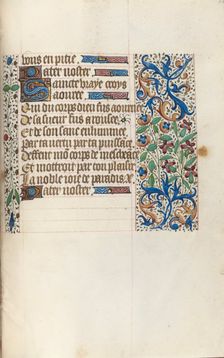 vous en pitie
Pater noster
Saincte vraye croys
aouree
Qui du corps dieu fus aournee
De sa sueur fus arousee
Et de son sanc enluminee
Par ta vertu par ta puissace
Deffent mo corps de mescheace
Et mottroie par ton plaisir
La noble ioie de paradis
Pater noster